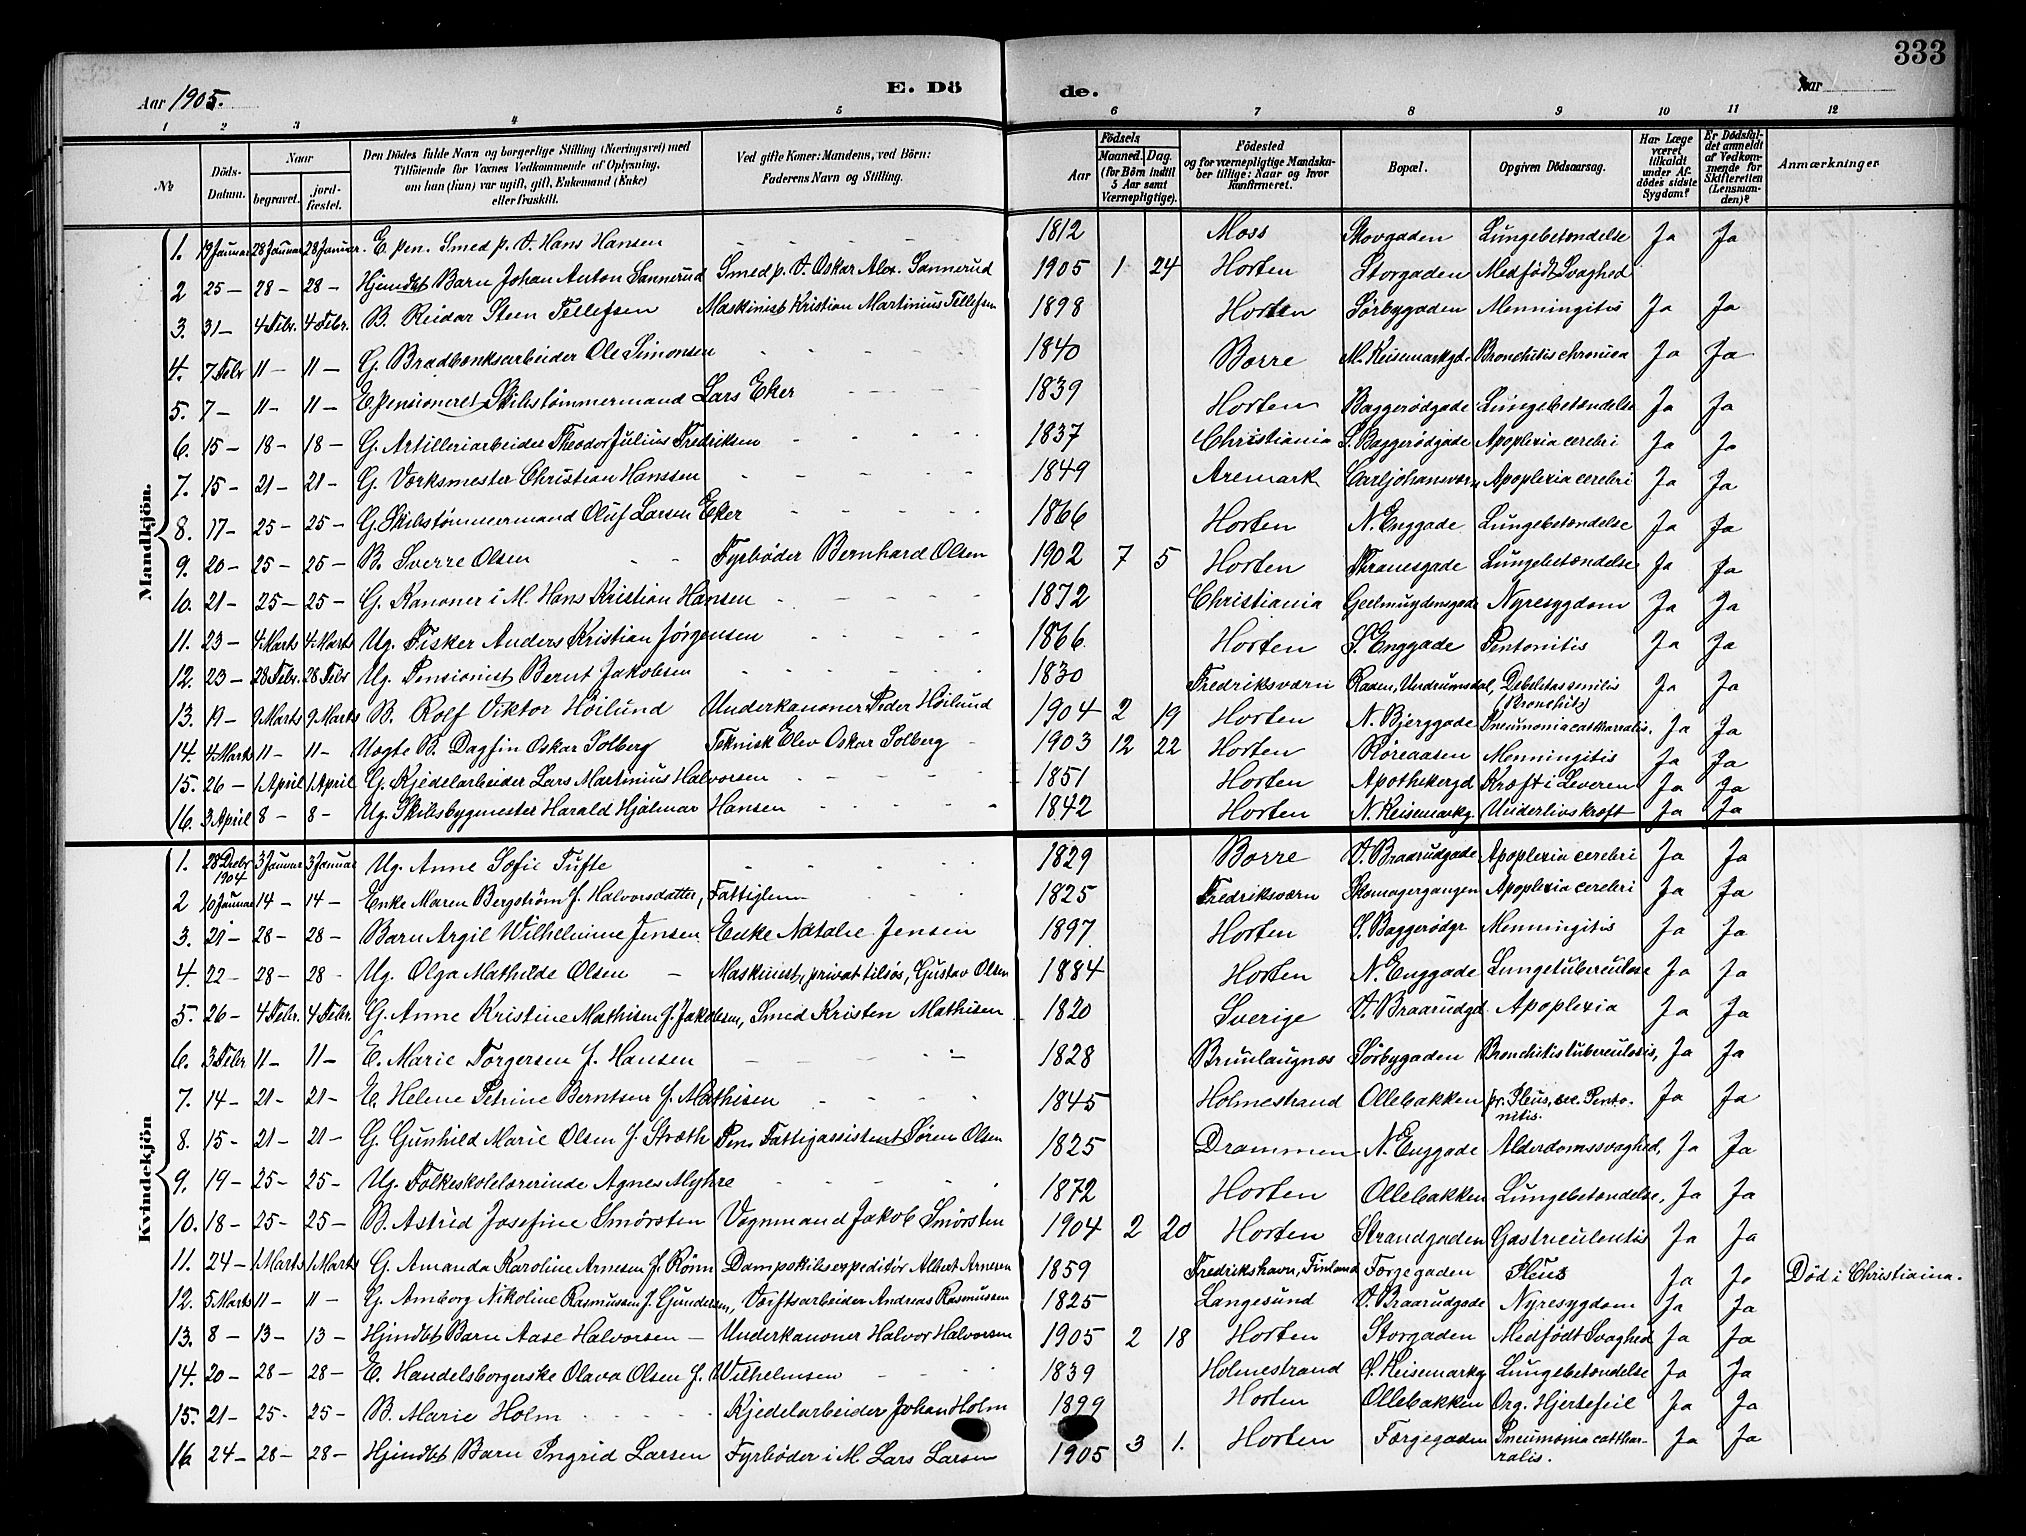 333
Aar 1905. E. Dö de. Aar
1 2 3 4 5 6 7 8 9 10 11 12
№ Döds-Datum. Naar begravet. jord-fæstet. Den Dödes fulde Navn og borgerlige Stilling (Næringsvei) med Tilföiende for Voxnes Vedkommende af Oplysning, om han (hun) var ugift, gift, Enkemand (Enke) eller fraskilt. Ved gifte Koner: Mandens, ved Börn: Faderens Navn og Stilling. Födsels Aar Maaned. Dag. (for Börn indtil 5 Aar samt Værnepligtige). Födested og for værnepligtige Mandskaber tillige: Naar og hvor konfirmeret. Bopæl. Opgiven Dödsaarsag. Har Læge været tilkaldt under Afdödes sidste Sygdom? Er Dödsfaldet anmeldt af Vedkommende for Skifteretten (Lensmanden)? Anmærkninger
Mandkjön.
1. 19 Januar 28 Januar 28 Januar. E. pen. Smed p. V. Hans Hansen - - - - 1812 Moss Skovgaden Lungebetændelse Ja Ja
2 25 - 28 - 28 - Hjemdbt Barn Johan Anton Sannerud Smed p. V. Oskar Alex. Sannerud 1905 1 24 Horten Storgaden Medfødt Svaghed
3. 31 - 4 Febr. 4 Febr. B. Reidar Steen Tellefsen Maskinist Kristian Martinius Tellefsen 1898 Horten Sørbygaden Menningitis Ja Ja
4. 7 Febr 11 - 11 - G. Bradbænksarbeider Ole Simonsen - - - - 1840 Borre M. Keisemarkgd. Bronchitis chronica Ja Ja
5. 7 - 11 - 11 - E. pensioneret Skibstømmermand Lars Eker - - - 1839 Horten Baggerödgade Lungebetændelse Ja Ja
6. 15 - 18 - 18 - G. Artilleriarbeider Theodor Julius Fredriksen - - - - 1837 Christiania S. Baggerödgade Apoplexia cerebri Ja Ja
7. 15 - 21 - 21 - G. Værksmester Christian Hanssen - - - - 1849 Aremark Carljohansværn Apoplexia cerebri Ja Ja
8. 17 - 25 - 25 - G. Skibstømmermand Oluf Larsen Eker - - - - 1866 Horten N. Enggade Lungebetændelse Ja Ja
9. 20 - 25 - 25 - B. Sverre Olsen - - Fyrbøder Bernhard Olsen 1902 7 5 Horten Thranesgade Lungebetændelse Ja Ja
10. 21 - 25 - 25 - G. Kanoner i M. Hans Kristian Hansen - - - - 1872 Christiania Geelmuydensgade Nyresygdom Ja Ja
11. 23 - 4 Marts 4 Marts Ug. Fisker Anders Kristian Jørgensen - - - - 1866 Horten S. Enggade Peritonitis Ja Ja
12. 23 - 28 Febr. 28 Febr Ug. Pensionist Bernt Jakobsen - - - - 1830 Fredriksværn Raaen, Undrumsdal, Debelitas senilis (Bronchit) Ja Ja
13. 19 - 9 Marts 9 Marts B. Rolf Viktor Høilund Underkanoner Peder Høilund 1904 2 19 Horten N. Bjerggade Pneumonia catharralis. Ja Ja
14. 4 Marts 11 - 11 - Uægte B. Dagfin Oskar Solberg Teknisk Elev Oskar Solberg - 1903 12 22 Horten Røreaasen Menningitis Ja Ja
15. 26 - 1 April 1 April G. Kjedelarbeider Lars Martinius Halvorsen - - - - 1851 Horten Apothekergd Kræft i Leveren Ja Ja
16. 3 April 8 - 8 - Ug. Skibsbygmester Harald Hjalmar Hansen - - - - 1842 Horten N. Keisemarkg. Underlivskræft Ja Ja
Kvindekjön
1. 28 Decbr 1904 3 Januar 3 Januar Ug. Anne Sofie Tufte - - - - 1829 Borre V. Braarudgade Apoplexia cerebri Ja Ja
2 10 Januar 14 - 14 - Enke Maren Bergstrøm f. Halvorsdatter, Fattiglem - - - 1825 Fredriksværn Skomagergangen Apoplexia cerebri Ja Ja
3. 21 - 28 - 28 - Barn Argil Wilhelmine Jensen Enke Natalie Jensen 1897 Horten S. Baggerödgr Menningitis Ja Ja
4. 22 - 28 - 28 - Ug. Olga Mathilde Olsen - Maskinist, privat tilsøs, Gustav Olsen 1884 Horten N. Enggade Lungetuberculose Ja Ja
5. 26 - 4 Febr. 4 Febr. G. Anne Kristine Mathisen f. Jakobsen, Smed Kristen Mathisen 1820 Sverige V. Braarudgd Apoplexia Ja Ja
6. 3 Febr 11 - 11 - E. Marie Torgersen f. Hansen - - - - 1828 Brunlaugnes Sørbygaden Bronchitis tuberculosis, Ja Ja
7. 14 - 21 - 21 - E. Helene Petrine Berntsen f. Mathisen - - - - 1845 Holmestrand Ollebakken pr. Pleus, sec. Peritonitis. Ja Ja
8. 15 - 21 - 21 - G. Gunhild Marie Olsen f. Stræth Pen. Fattigassistent Søren Olsen 1825 Drammen N. Enggade Alderdomssvaghed, Ja Ja
9. 19 - 25 - 25 - Ug. Folkeskolelærerinde Agnes Myhre - - - - 1872 Horten Ollebakken Lungebetændelse, Ja Ja
10. 18 - 25 - 25 - B. Astrid Josefine Smørsten Vognmand Jakob Smørsten 1904 2 20 Horten Strandgaden Gastriculentis Ja Ja
11. 24 - 1 Marts 1 Marts G. Amanda Karoline Arnesen f. Rønn Dampskibsexpeditør Albert Arnesen 1859 Fredrikshavn, Finland Færgegaden Pleus Ja Ja Død i Christiania.
12. 5 Marts 11 - 11 - G. Amborg Nikoline Rasmussen f. Gundersen, Værftsarbeider Andreas Rasmussen 1825 Langesund V. Braarudgade Nyresygdom Ja Ja
13. 8 - 13 - 13 - Hjemdbt Barn Aase Halvorsen - Underkanoner Halvor Halvorsen 1905 2 18 Horten Storgaden Medfødt Svaghed Ja Ja
14. 20 - 28 - 28 - E. Handelsborgerske Olava Olsen f. Wilhelmsen - - - 1839 Holmestrand S. Keisemarkg Lungebetændelse Ja Ja
15. 21 - 25 - 25 - B. Marie Holm - - - - Kjedelarbeider Johan Holm 1899 Horten Ollebakken Org. Hjertefeil Ja Ja
16 24 - 28 - 28 - Hjemdbt Barn Ingrid Larsen Fyrbøder i M. Lars Larsen 1905 3 1. Horten Færgegaden Pneumonia catharralis. Ja Ja